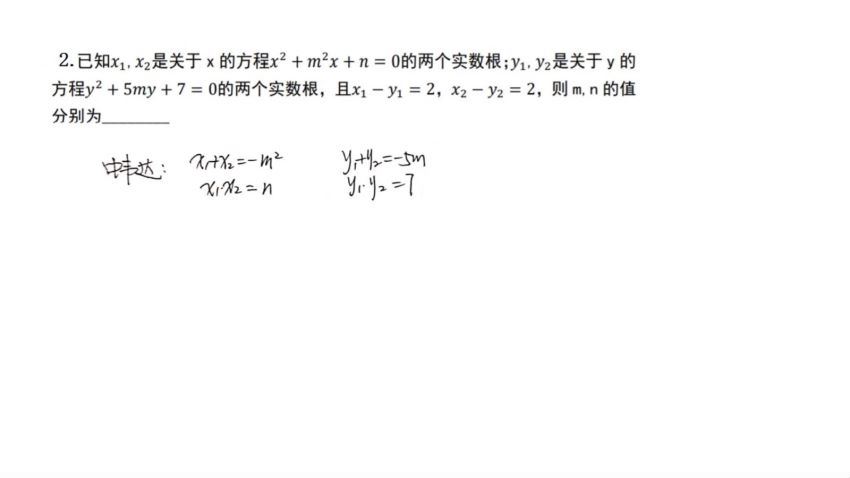 2.已知x₁, x₂是关于 x 的方程x² + m²x + n = 0的两个实数根；y₁, y₂是关于 y 的
方程y² + 5my + 7 = 0的两个实数根，且x₁ − y₁ = 2，x₂ − y₂ = 2，则 m, n 的值
分别为________
由韦达：x₁+x₂=−m² y₁+y₂=−5m
x₁·x₂=n y₁·y₂=7